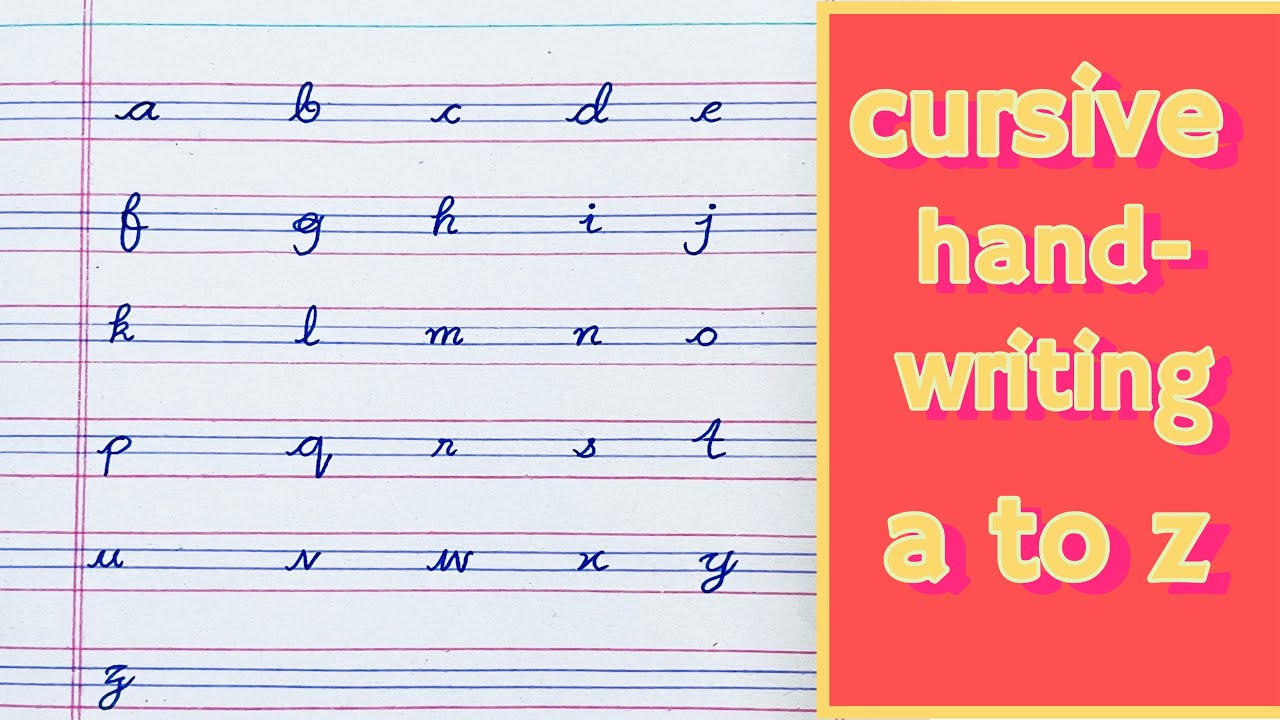 a b c d e
f g h i j
k l m n o
p q r s t
u v w x y
z
cursive
hand-
writing
a to z